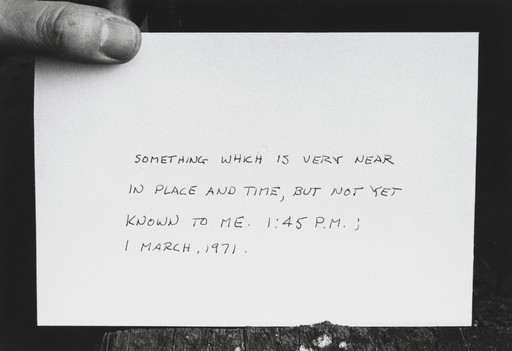 SOMETHING WHICH IS VERY NEAR
IN PLACE AND TIME, BUT NOT YET
KNOWN TO ME. 1:45 P.M. ;
1 MARCH, 1971.